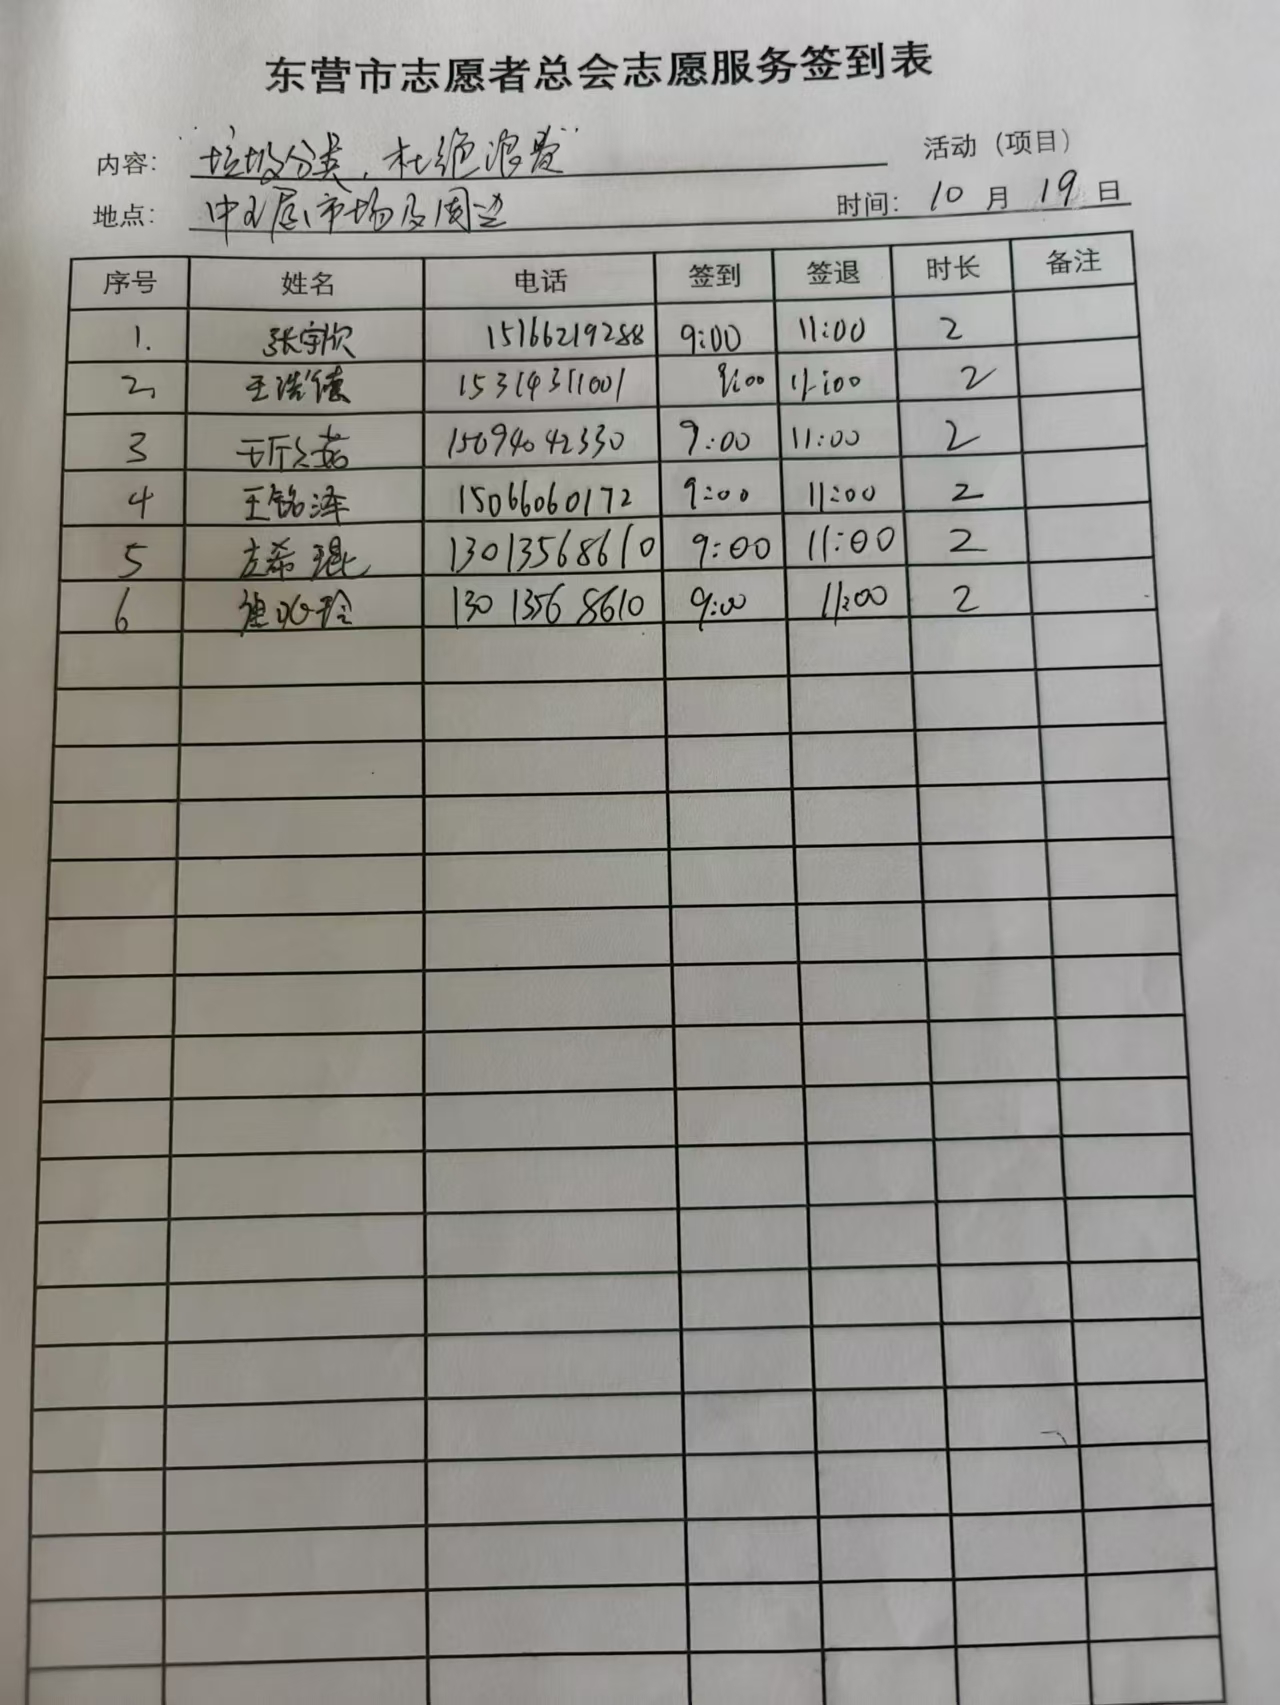 东营市志愿者总会志愿服务签到表
内容： "垃圾分类，杜绝浪费" 活动（项目）
地点： 市场及周边 时间： 10 月 19 日
序号 姓名 电话 签到 签退 时长 备注
1. 张宇欣 15166219288 9:00 11:00 2
2. 王浩德 15314311001 9:00 11:00 2
3 15094042330 9:00 11:00 2
4 王铭泽 15066060172 9:00 11:00 2
5 左希琨 13013568610 9:00 11:00 2
6 13013568610 9:00 11:00 2